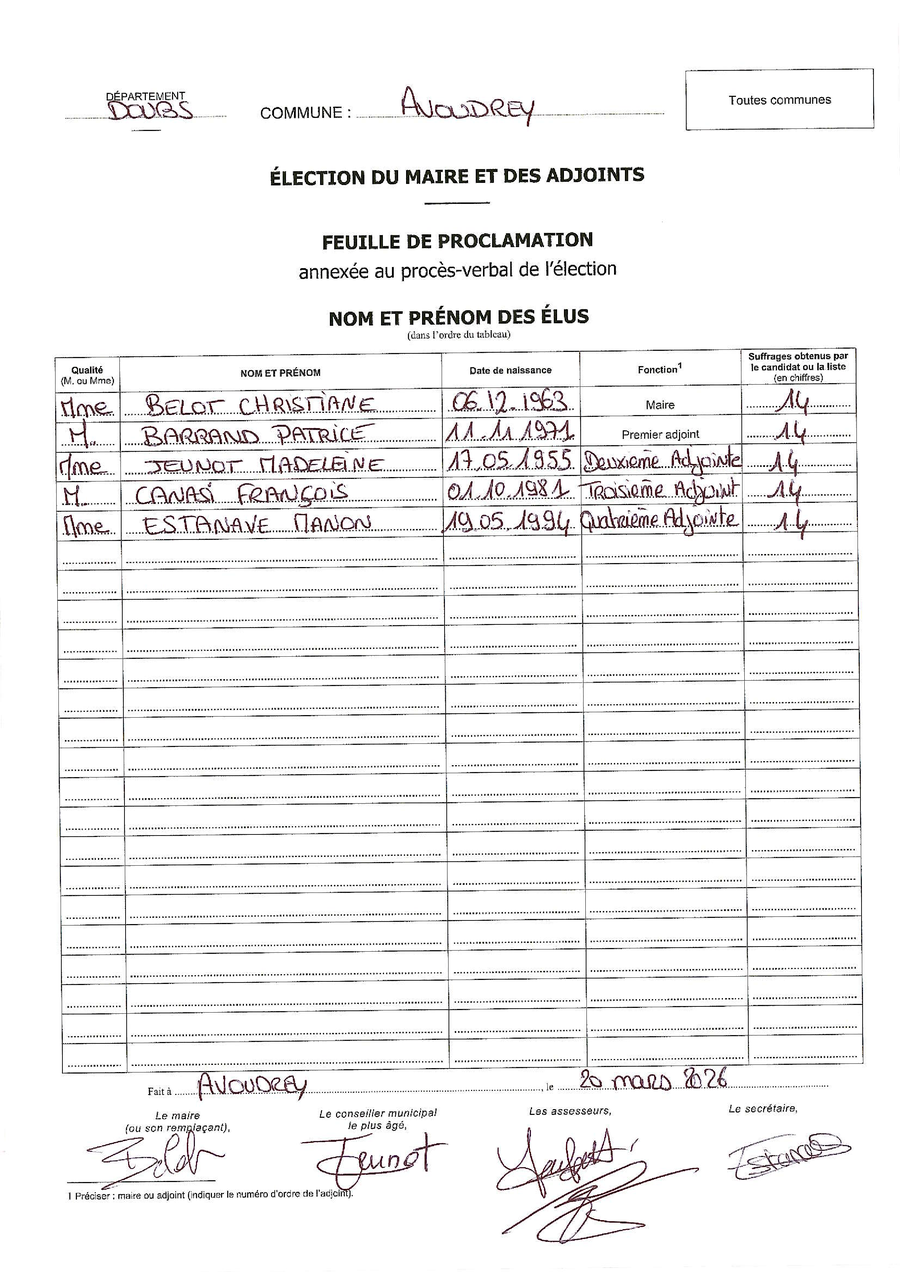 DÉPARTEMENT
DOUBS
COMMUNE : AVOUDREY
Toutes communes
ÉLECTION DU MAIRE ET DES ADJOINTS
FEUILLE DE PROCLAMATION
annexée au procès-verbal de l'élection
NOM ET PRÉNOM DES ÉLUS
(dans l'ordre du tableau)
Qualité (M. ou Mme) NOM ET PRÉNOM Date de naissance Fonction1 Suffrages obtenus par le candidat ou la liste (en chiffres)
Mme BELOT CHRISTIANE 06.12.1963 Maire 14
M. BARRAND PATRICE 11.11.1971 Premier adjoint 14
Mme JEUNOT MADELEINE 17.05.1955 Deuxième Adjointe 14
M. CANASI FRANÇOIS 01.10.1981 Troisième Adjoint 14
Mme ESTANAVE MANON 19.05.1994 Quatrième Adjointe 14
Fait à AVOUDREY, le 20 mars 2026
Le maire (ou son remplaçant),
Le conseiller municipal le plus âgé,
Les assesseurs,
Le secrétaire,
Belot
Jeunot
Estanave
1 Préciser : maire ou adjoint (indiquer le numéro d'ordre de l'adjoint).